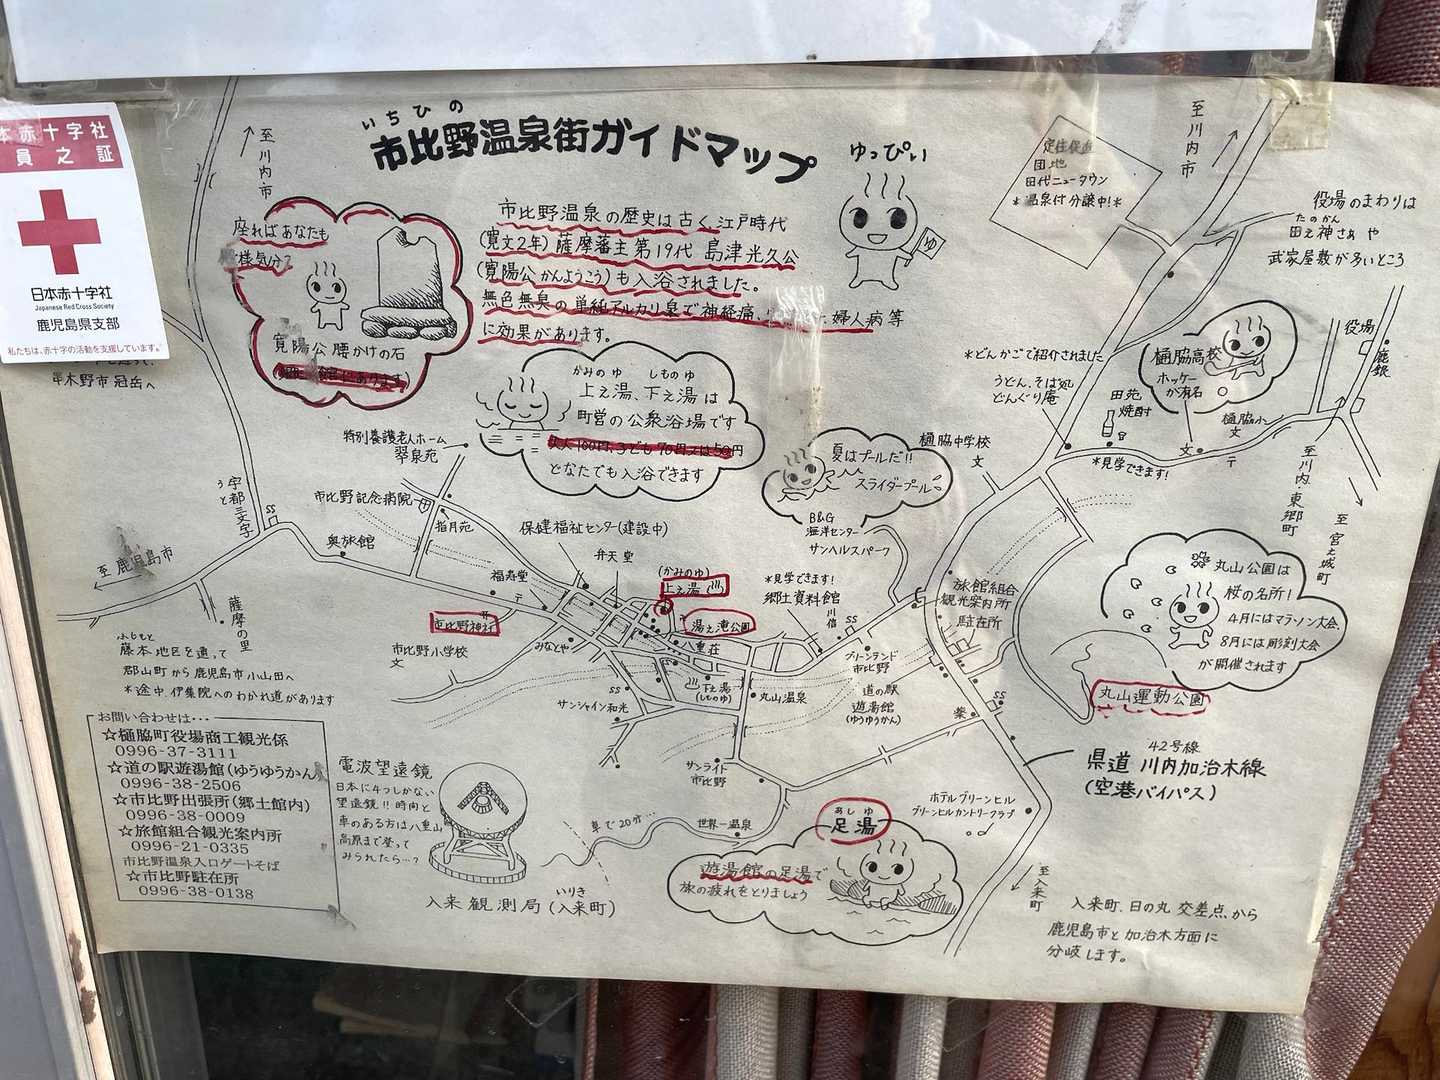 本赤十字社
員之証
日本赤十字社
Japanese Red Cross Society
鹿児島県支部
私たちは、赤十字の活動を支援しています。
いちひの
市比野温泉街ガイドマップ
ゆっぴい
ゆ
至川内市
至川内市
座ればあなたも
様気分?
寛陽公腰かけの石
市比野温泉の歴史は古く江戸時代
(寛文2年)薩摩藩主第19代 島津光久公
(寛陽公かんようこう)も入浴されました。
無色無臭の単純アルカリ泉で神経痛、
婦人病等
に効果があります。
かみのゆ しものゆ
上之湯、下之湯は
町営の公衆浴場です
どなたでも入浴できます
団地
田代ニュータウン
*温泉付分譲中!*
役場のまわりは
たのかん
田之神さぁや
武家屋敷が多いところ
役場
鹿銀
樋脇高校
ホッケー
が有名
樋脇小
文
文
〒
*どんかごで紹介されました
うどん、そば処
どんぐり庵
田苑
焼酎
*見学できます!
至川内・東郷町
至宮之城町
串木野市冠岳へ
特別養護老人ホーム
翠泉苑
市比野記念病院
指月苑
奥旅館
宇都三文字
うと
SS
至鹿児島市
薩摩の里
ふもと
藤本地区を通って
郡山町から鹿児島市小山田へ
*途中、伊集院へのわかれ道があります
保健福祉センター(建設中)
弁天堂
福寿堂
〒
市比野神社
市比野小学校
文
みなとや
(かみのゆ)
上之湯
湯之滝公園
八重荘
下之湯
(しものゆ)
丸山温泉
サンシャイン和光
SS
*見学できます!
郷土資料館
川信
SS
グリーンランド
市比野
道の駅
遊湯館
(ゆうゆうかん)
樋脇中学校
文
夏はプールだ!!
スライダープール
B&G
海洋センター
サンヘルスパーク
旅館組合
観光案内所
駐在所
SS
薬
丸山公園は
桜の名所!
4月にはマラソン大会、
8月には彫刻大会
が開催されます
丸山運動公園
42号線
県道 川内加治木線
(空港バイパス)
お問い合わせは・・・
☆樋脇町役場商工観光係
0996-37-3111
☆道の駅遊湯館(ゆうゆうかん)
0996-38-2506
☆市比野出張所(郷土館内)
0996-38-0009
☆旅館組合観光案内所
0996-21-0335
市比野温泉入口ゲートそば
☆市比野駐在所
0996-38-0138
電波望遠鏡
日本に4つしかない
望遠鏡!!時間と
車のある方は八重山
高原まで登って
みられたら…?
入来観測局(入来町)
いりき
車で20分…
サンライト
市比野
世界一温泉
ホテルグリーンヒル
グリーンヒルカントリークラブ
あしゆ
足湯
遊湯館の足湯で
旅の疲れをとりましょう
至入来町
入来町、日の丸交差点から
鹿児島市と加治木方面に
分岐します。